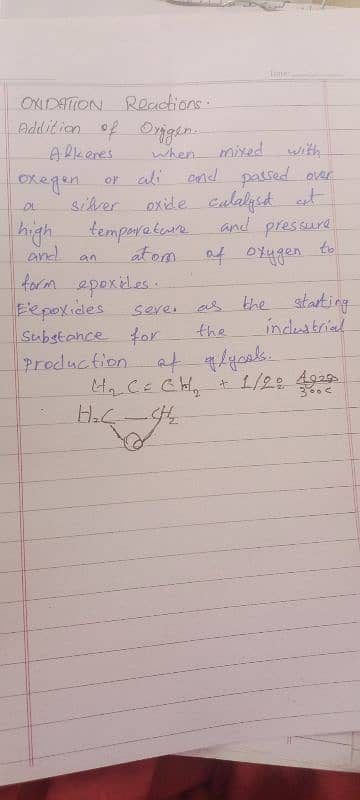 OXIDATION Reactions.
Addition of Oxjgen.
Alkenes when mixed with
oxegen or ali and passed over
a silver oxide catalyst at
high temperature and pressure
and an atom of oxygen to
form epoxides.
E'epoxides serve as the starting
substance for the industrial
production of glycols.
H₂C = CH₂ + 1/2O₂ Ag2O 300C
H₂C — CH₂
O